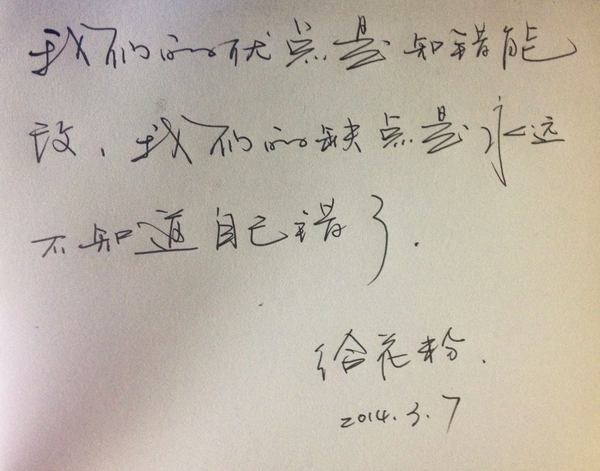 我们的优点是知错能
改，我们的缺点是永远
不知道自己错了.
给花粉.
2014.3.7